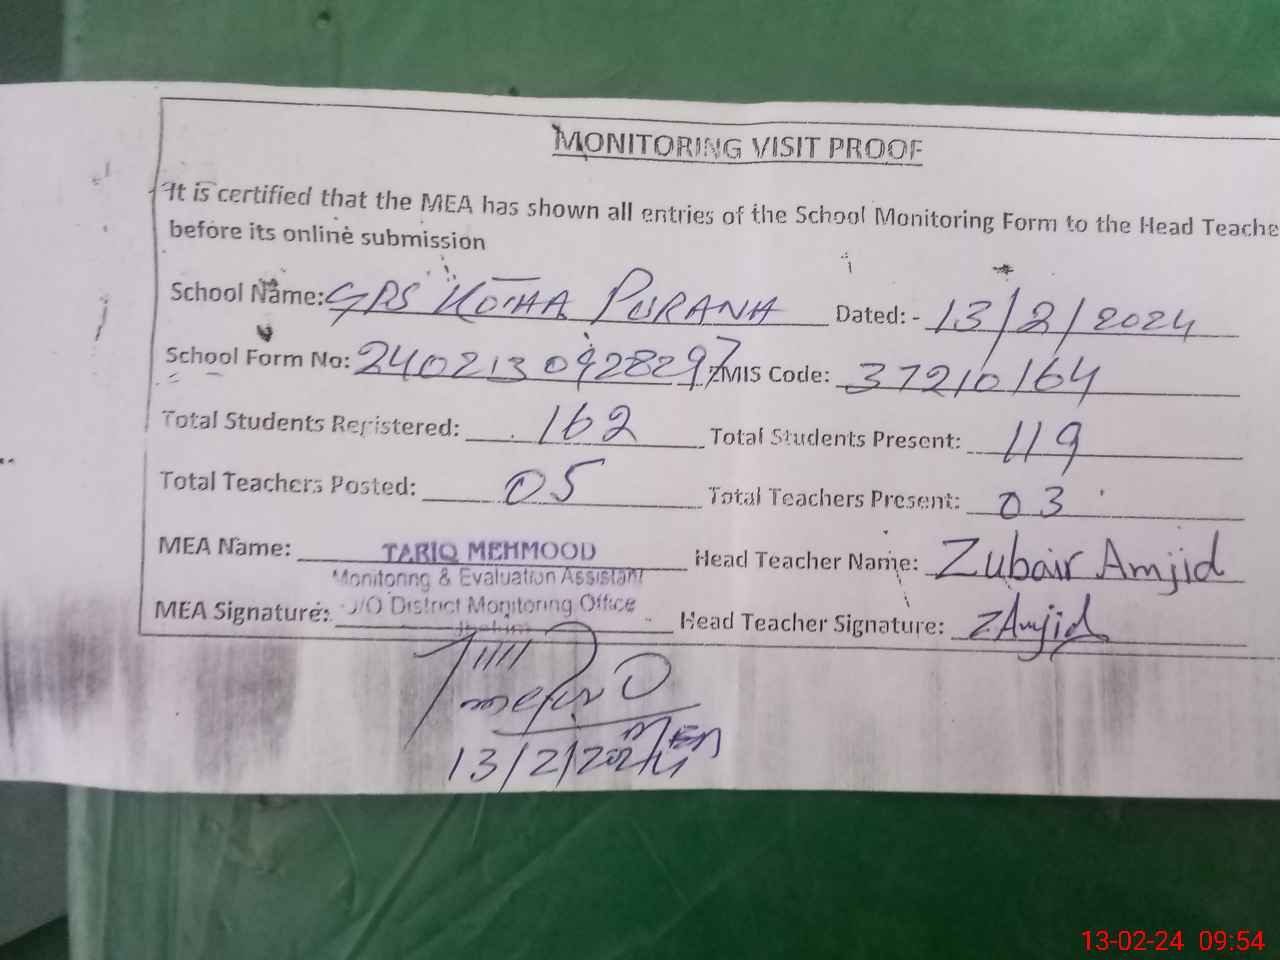 MONITORING VISIT PROOF
It is certified that the MEA has shown all entries of the School Monitoring Form to the Head Teache
before its online submission
School Name: GPS KOTHA PURANA Dated: - 13/2/2024
School Form No: 2402130928297 EMIS Code: 37210164
Total Students Registered: 162 Total Students Present: 119
Total Teachers Posted: 05 Total Teachers Present: 03
MEA Name: TARIQ MEHMOOD Head Teacher Name: Zubair Amjid
Monitoring & Evaluation Assistant
MEA Signature: O/O District Monitoring Office Head Teacher Signature: ZAmjid
Jhelum
MEA
13/2/2024
13-02-24 09:54